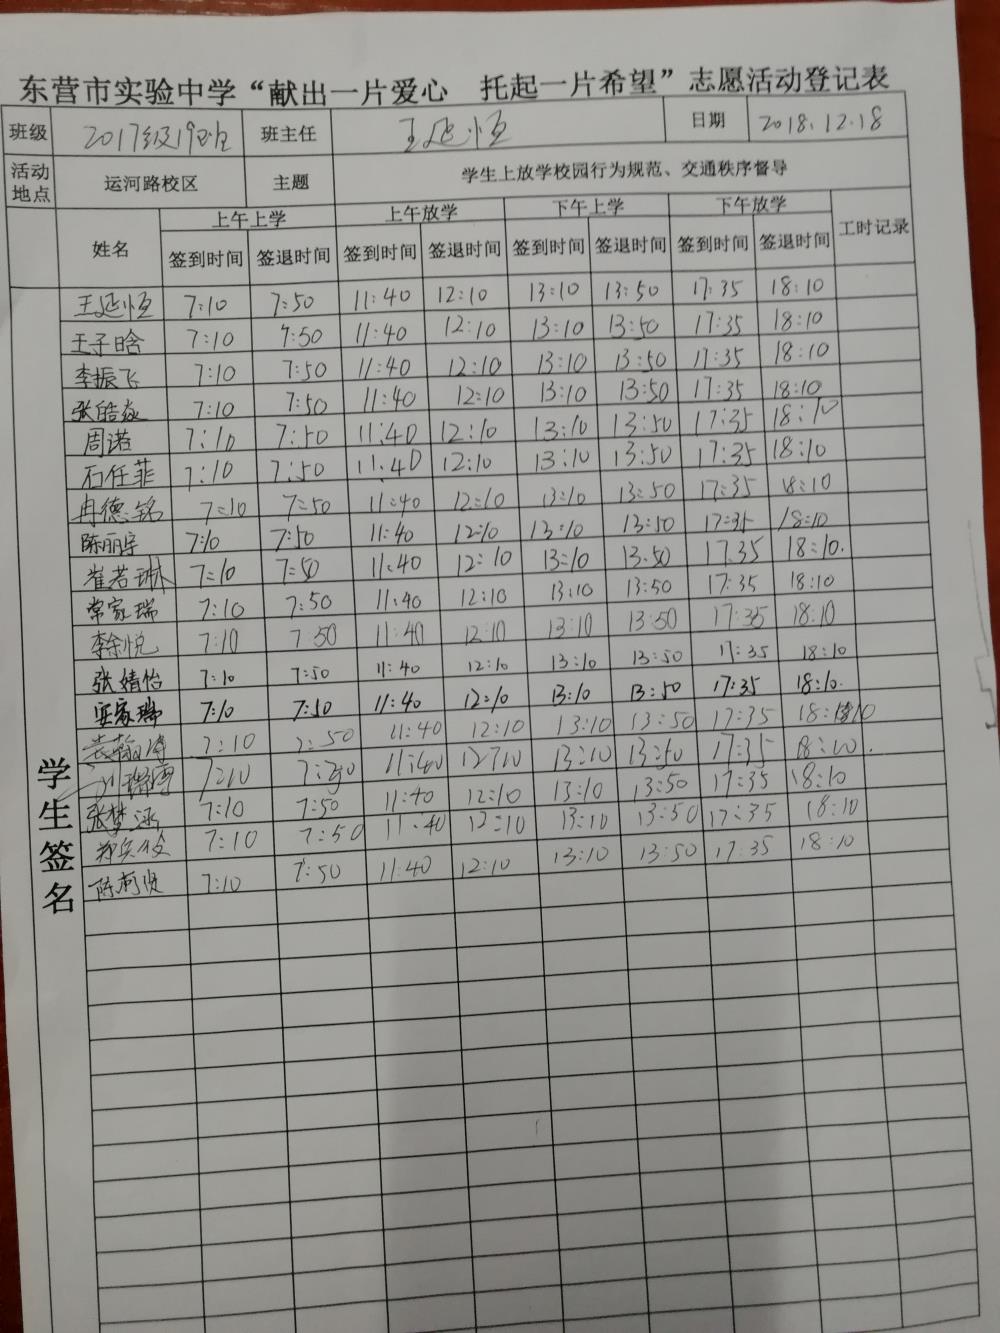 东营市实验中学“献出一片爱心 托起一片希望”志愿活动登记表
班级 2017级19班 班主任 王延恒 日期 2018.12.18
活动地点 运河路校区 主题 学生上放学校园行为规范、交通秩序督导
姓名 上午上学 上午放学 下午上学 下午放学 工时记录
签到时间 签退时间 签到时间 签退时间 签到时间 签退时间 签到时间 签退时间
学生签名
王延恒 7:10 7:50 11:40 12:10 13:10 13:50 17:35 18:10
王子晗 7:10 7:50 11:40 12:10 13:10 13:50 17:35 18:10
李振飞 7:10 7:50 11:40 12:10 13:10 13:50 17:35 18:10
张皓焱 7:10 7:50 11:40 12:10 13:10 13:50 17:35 18:10
周诺 7:10 7:50 11:40 12:10 13:10 13:50 17:35 18:10
石任菲 7:10 7:50 11:40 12:10 13:10 13:50 17:35 18:10
冉德铭 7:10 7:50 11:40 12:10 13:10 13:50 17:35 18:10
陈丽宇 7:10 7:50 11:40 12:10 13:10 13:50 17:35 18:10
崔若琳 7:10 7:50 11:40 12:10 13:10 13:50 17:35 18:10.
常家瑞 7:10 7:50 11:40 12:10 13:10 13:50 17:35 18:10
李余悦 7:10 7:50 11:40 12:10 13:10 13:50 17:35 18:10
张婧怡 7:10 7:50 11:40 12:10 13:10 13:50 17:35 18:10
安家瑞 7:10 7:50 11:40 12:10 13:10 13:50 17:35 18:10.
7:10 7:50 11:40 12:10 13:10 13:50 17:35 18:10
7:10 7:50 11:40 12:10 13:10 13:50 17:35 18:10.
张梦涵 7:10 7:50 11:40 12:10 13:10 13:50 17:35 18:10
7:10 7:50 11:40 12:10 13:10 13:50 17:35 18:10
陈柯贤 7:10 7:50 11:40 12:10 13:10 13:50 17:35 18:10